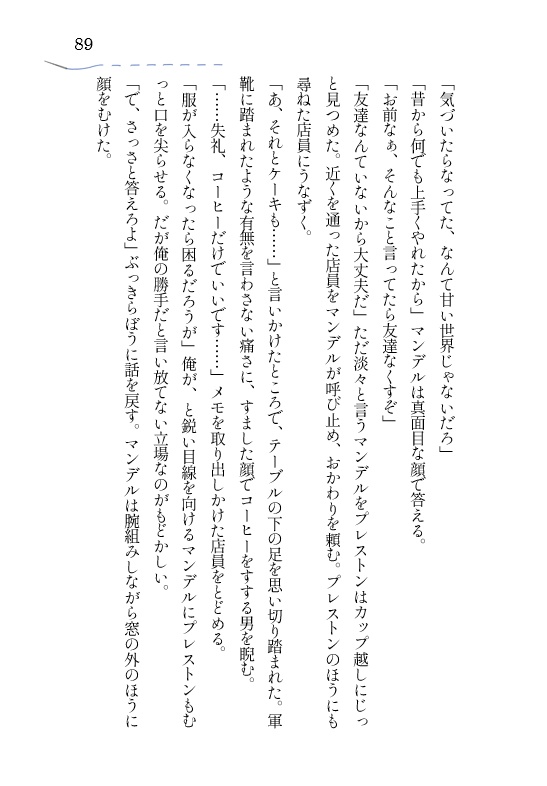 89
「気づいたらなってた、なんて甘い世界じゃないだろ」
「昔から何でも上手くやれたから」マンデルは真面目な顔で答える。
「お前なぁ、そんなこと言ってたら友達なくすぞ」
「友達なんていないから大丈夫だ」ただ淡々と言うマンデルをプレストンはカップ越しにじっ
と見つめた。近くを通った店員をマンデルが呼び止め、おかわりを頼む。プレストンのほうにも
尋ねた店員にうなずく。
「あ、それとケーキも……」と言いかけたところで、テーブルの下の足を思い切り踏まれた。軍
靴に踏まれたような有無を言わさない痛さに、すました顔でコーヒーをすする男を睨む。
「……失礼、コーヒーだけでいいです……」メモを取り出しかけた店員をとどめる。
「服が入らなくなったら困るだろうが」俺が、と鋭い目線を向けるマンデルにプレストンもむ
っと口を尖らせる。だが俺の勝手だと言い放てない立場なのがもどかしい。
「で、さっさと答えろよ」ぶっきらぼうに話を戻す。マンデルは腕組みしながら窓の外のほうに
顔をむけた。